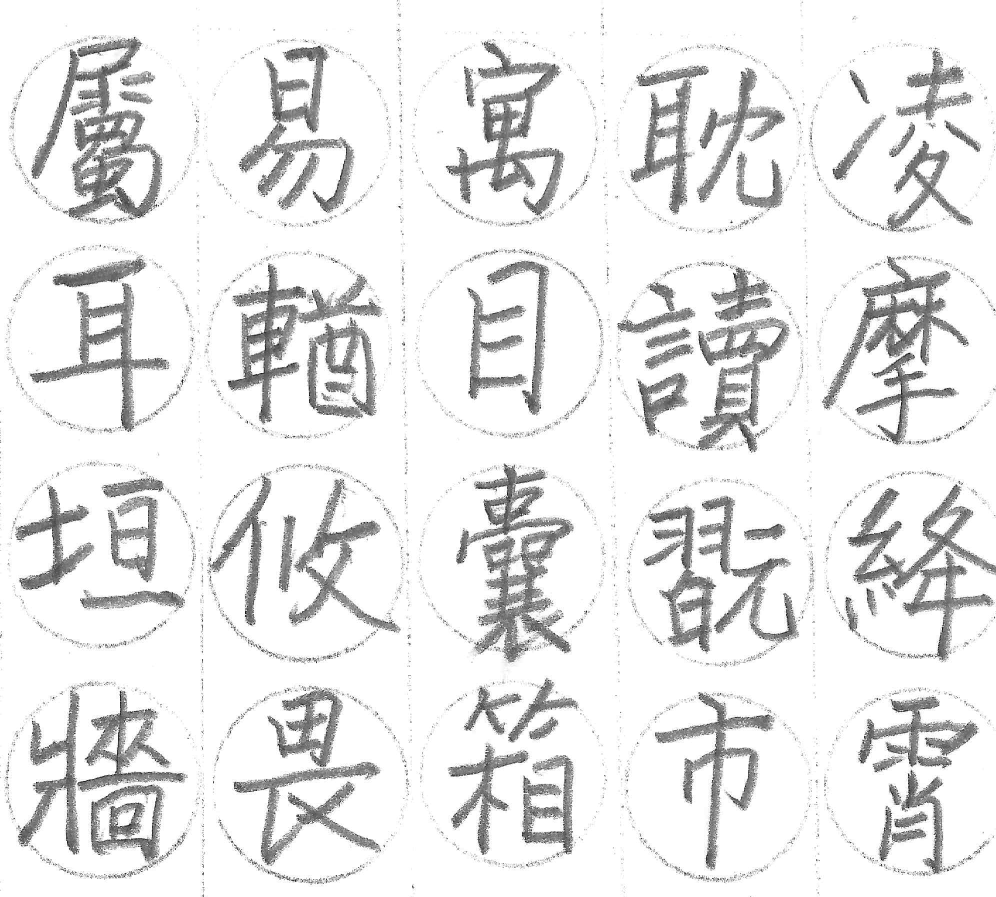 凌摩絳霄
耽讀翫市
寓目囊箱
易輶攸畏
屬耳垣牆